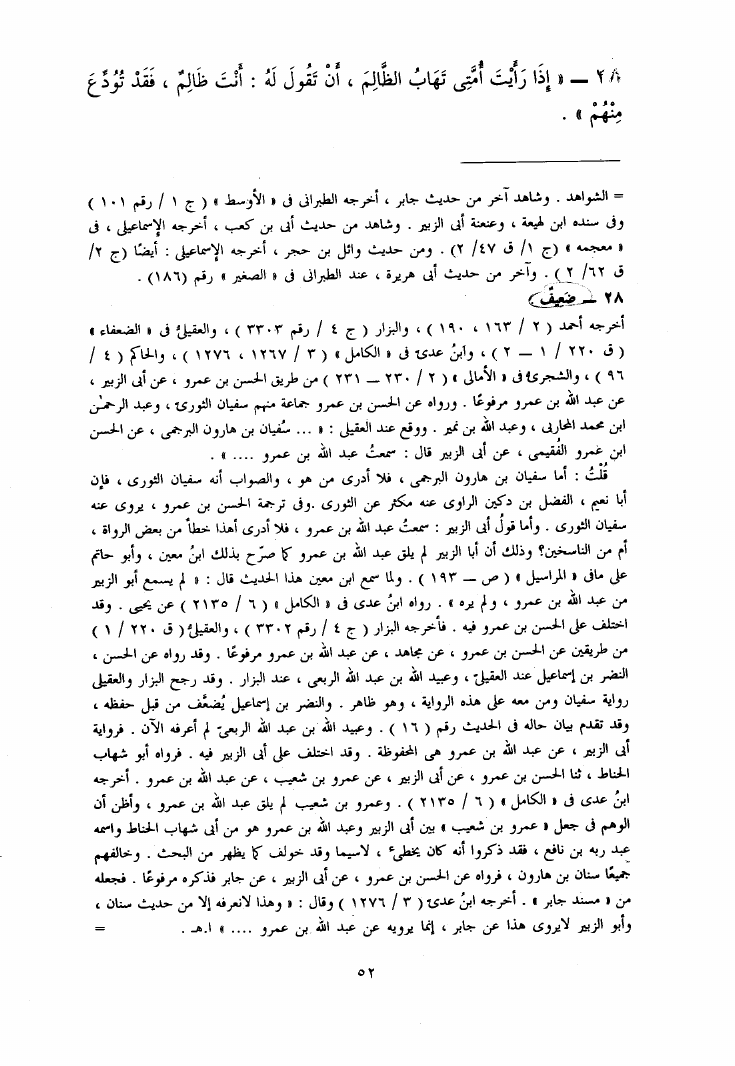 ٢٨ — « إِذَا رَأَيْتَ أُمَّتِى تَهَابُ الظَّالِمَ ، أَنْ تَقُولَ لَهُ : أَنْتَ ظَالِمٌ ، فَقَدْ تُوُدِّعَ
مِنْهُمْ » .
= الشواهد . وشاهد آخر من حديث جابر ، أخرجه الطبرانى فى « الأوسط » ( ج ١ / رقم ١٠١ )
وفى سنده ابن لهيعة ، وعنعنة أبى الزبير . وشاهد من حديث أبى بن كعب ، أخرجه الإسماعيلى ، فى
« معجمه » (ج ١/ ق ٤٧/ ٢) . ومن حديث وائل بن حجر ، أخرجه الإسماعيلى : أيضًا (ج ٢/
ق ٦٢/ ٢ ) . وآخر من حديث أبى هريرة ، عند الطبرانى فى « الصغير » رقم (١٨٦) .
٢٨ — ضَعِيفٌ
أخرجه أحمد ( ٢ / ١٦٣ ، ١٩٠ ) ، والبزار ( ج ٤ / رقم ٣٣٠٣ ) ، والعقيلىُّ فى « الضعفاء »
( ق ٢٢٠ / ١ — ٢ ) ، وابنُ عدىّ فى « الكامل » ( ٣ / ١٢٦٧ ، ١٢٧٦ ) ، والحاكم ( ٤ /
٩٦ ) ، والشجرىُّ فى « الأمالى » ( ٢ / ٢٣٠ — ٢٣١ ) من طريق الحسن بن عمرو ، عن أبى الزبير ،
عن عبد الله بن عمرو مرفوعًا . ورواه عن الحسن بن عمرو جماعة منهم سفيان الثورىّ ، وعبد الرحمٰن
ابن محمد المحاربى ، وعبد الله بن نمير . ووقع عند العقيلى : « ... سُفيان بن هارون البرجمى ، عن الحسن
ابن عمرو الفُقيمى ، عن أبى الزبير قال : سمعتُ عبد الله بن عمرو .... » .
قُلْتُ : أما سفيان بن هارون البرجمى ، فلا أدرى من هو ، والصواب أنه سفيان الثورى ، فإن
أبا نعيم ، الفضل بن دكين الراوى عنه مكثر عن الثورى .وفى ترجمة الحسن بن عمرو ، يروى عنه
سفيان الثورى . وأما قولُ أبى الزبير : سمعتُ عبد الله بن عمرو ، فلا أدرى أهذا خطأ من بعض الرواة ،
أم من الناسخين؟ وذلك أن أبا الزبير لم يلق عبد الله بن عمرو كما صرّح بذلك ابنُ معين ، وأبو حاتم
على مافى « المراسيل » ( ص — ١٩٣ ) . ولما سمع ابن معين هذا الحديث قال : « لم يسمع أبو الزبير
من عبد الله بن عمرو ، ولم يره » . رواه ابنُ عدى فى « الكامل » ( ٦ / ٢١٣٥ ) عن يحيى . وقد
اختلف على الحسن بن عمرو فيه . فأخرجه البزار ( ج ٤ / رقم ٣٣٠٢ ) ، والعقيلىُّ ( ق ٢٢٠ / ١ )
من طريقين عن الحسن بن عمرو ، عن مجاهد ، عن عبد الله بن عمرو مرفوعًا . وقد رواه عن الحسن ،
النضر بن إسماعيل عند العقيلىّ ، وعبيد الله بن عبد الله الربعى ، عند البزار . وقد رجح البزار والعقيلى
رواية سفيان ومن معه على هذه الرواية ، وهو ظاهر . والنضر بن إسماعيل يُضعَّف من قبل حفظه ،
وقد تقدم بيان حاله فى الحديث رقم ( ١٦ ) . وعبيد الله بن عبد الله الربعىّ لم أعرفه الآن . فرواية
أبى الزبير ، عن عبد الله بن عمرو هى المحفوظة . وقد اختلف على أبى الزبير فيه . فرواه أبو شهاب
الحناط ، ثنا الحسن بن عمرو ، عن أبى الزبير ، عن عمرو بن شعيب ، عن عبد الله بن عمرو . أخرجه
ابنُ عدى فى « الكامل » ( ٦ / ٢١٣٥ ) . وعمرو بن شعيب لم يلق عبد الله بن عمرو ، وأظن أن
الوهم فى جعل « عمرو بن شعيب » بين أبى الزبير وعبد الله بن عمرو هو من أبى شهاب الحناط واسمه
عبد ربه بن نافع ، فقد ذكروا أنه كان يخطىء ، لاسيما وقد خولف كما يظهر من البحث . وخالفهم
جميعًا سنان بن هارون ، فرواه عن الحسن بن عمرو ، عن أبى الزبير ، عن جابر فذكره مرفوعًا . فجعله
من « مسند جابر » . أخرجه ابنُ عدىّ ( ٣ / ١٢٧٦ ) وقال : « وهذا لانعرفه إلا من حديث سنان ،
وأبو الزبير لايروى هذا عن جابر ، إنما يرويه عن عبد الله بن عمرو .... » ا.هـ . =
٥٢